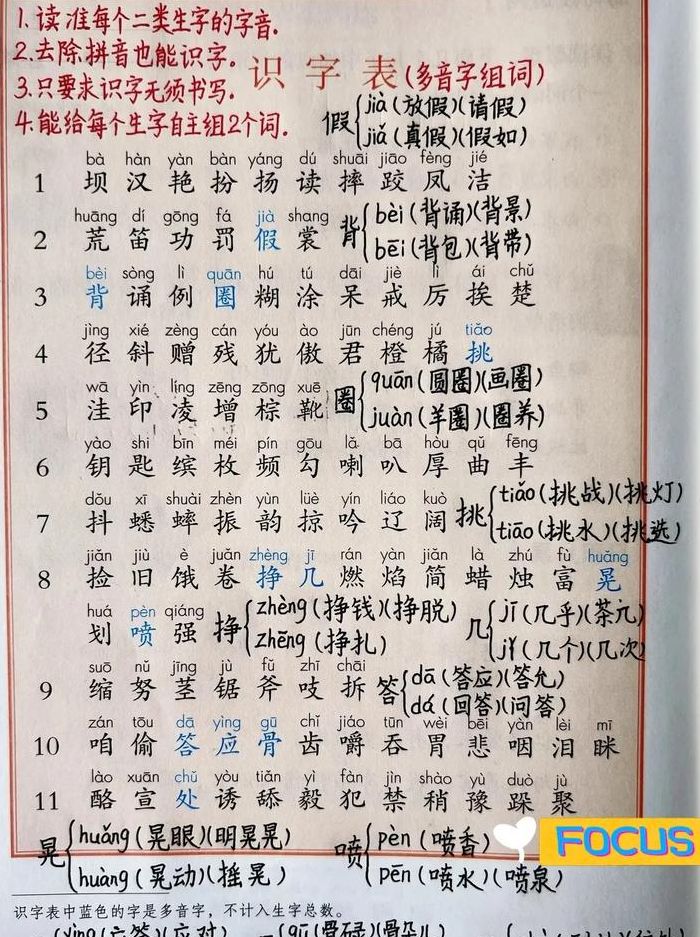 1.读准每个二类生字的字音.
2.去除拼音也能识字.
3.只要求识字无须书写.
4.能给每个生字自主组2个词.
识字表(多音字组词)
假{jià(放假)(请假)
jiǎ(真假)(假如)
bà hàn yàn bàn yáng dú shuāi jiāo fèng jié
1 坝 汉 艳 扮 扬 读 摔 跤 凤 洁
huāng dí gōng fá jià shang
2 荒 笛 功 罚 假 裳
背{bèi(背诵)(背景)
bēi(背包)(背带)
bèi sòng lì quān hú tú dāi jiè lì ái chǔ
3 背 诵 例 圈 糊 涂 呆 戒 厉 挨 楚
jìng xié zèng cán yóu ào jūn chéng jú tiǎo
4 径 斜 赠 残 犹 傲 君 橙 橘 挑
wā yìn líng zēng zōng xuē
5 洼 印 凌 增 棕 靴
圈{quān(圆圈)(画圈)
juàn(羊圈)(圈养)
yào shi bīn méi pín gōu lǎ bā hòu qǔ fēng
6 钥 匙 缤 枚 频 勾 喇 叭 厚 曲 丰
dǒu xī shuài zhèn yùn lüè yín liáo kuò
7 抖 蟋 蟀 振 韵 掠 吟 辽 阔
挑{tiǎo(挑战)(挑灯)
tiāo(挑水)(挑选)
jiǎn jiù è juǎn zhèng jī rán yàn jiǎn là zhú fù huǎng
8 捡 旧 饿 卷 挣 几 燃 焰 简 蜡 烛 富 晃
huá pèn qiáng
划 喷 强
挣{zhèng(挣钱)(挣脱)
zhēng(挣扎)
几{jī(几乎)(茶几)
jǐ(几个)(几次)
suō nǔ jīng jù fǔ zhī chāi
9 缩 努 茎 锯 斧 吱 拆
答{dā(答应)(答允)
dá(回答)(问答)
zán tōu dā yìng gū chǐ jiáo tūn wèi bēi yàn lèi mī
10 咱 偷 答 应 骨 齿 嚼 吞 胃 悲 咽 泪 眯
lào xuān chǔ yòu tiǎn yì fàn jìn shào yù duò jù
11 酪 宣 处 诱 舔 毅 犯 禁 稍 豫 跺 聚
晃{huǎng(晃眼)(明晃晃)
huàng(晃动)(摇晃)
喷{pèn(喷香)
pēn(喷水)(喷泉)
FOCUS
识字表中蓝色的字是多音字，不计入生字总数。